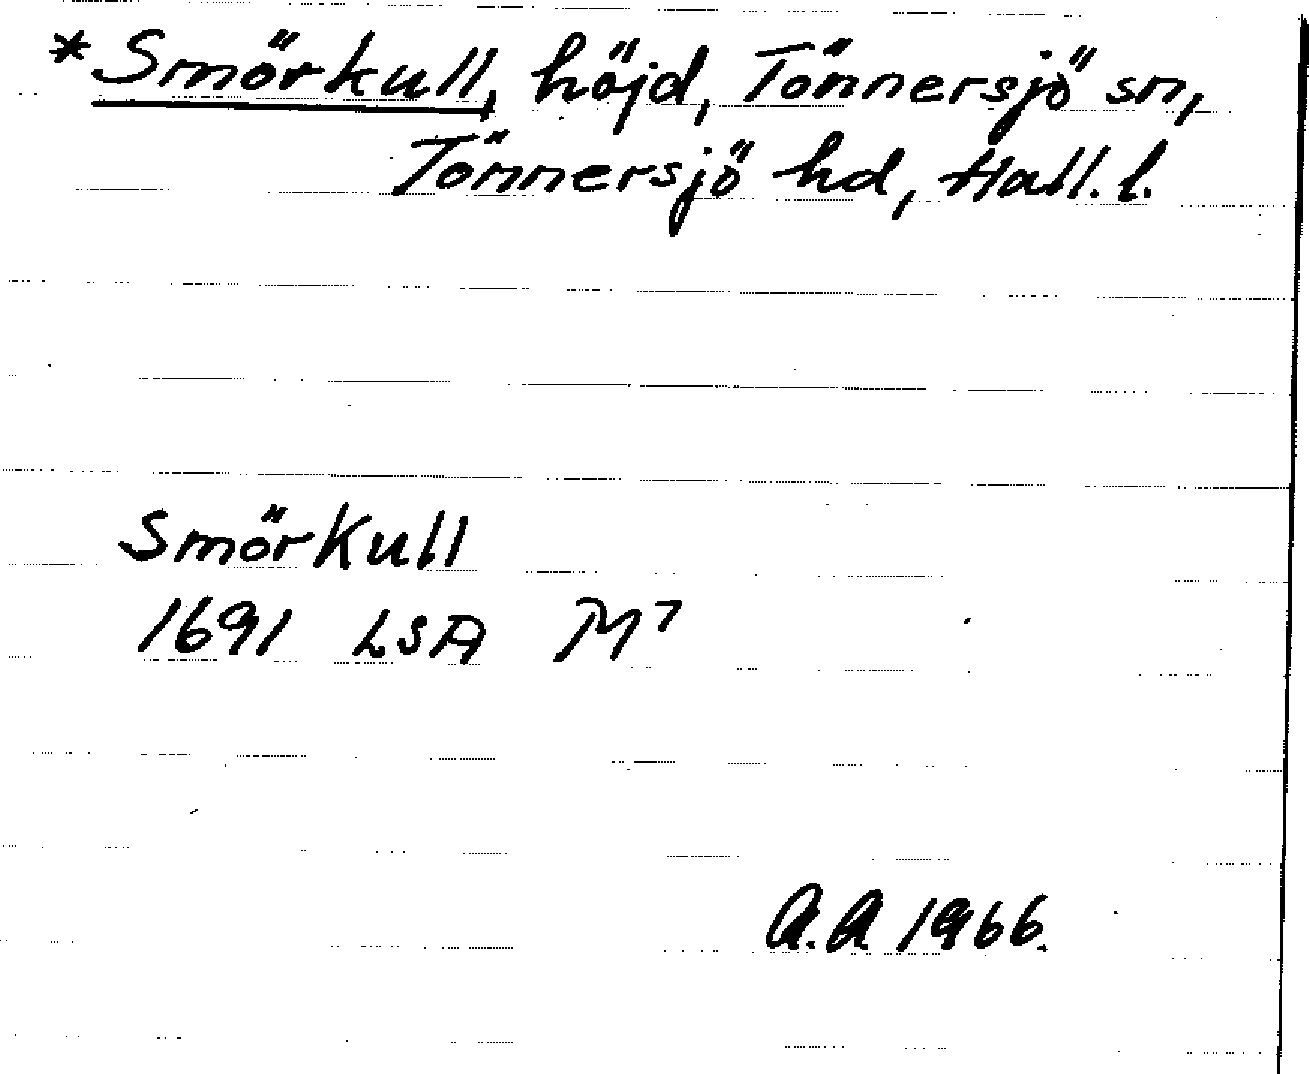 *Smörkull, höjd, Tönnersjö sn,
Tönnersjö hd, Hall. l.
Smörkull
1691 LSA M7
A.A 1966.